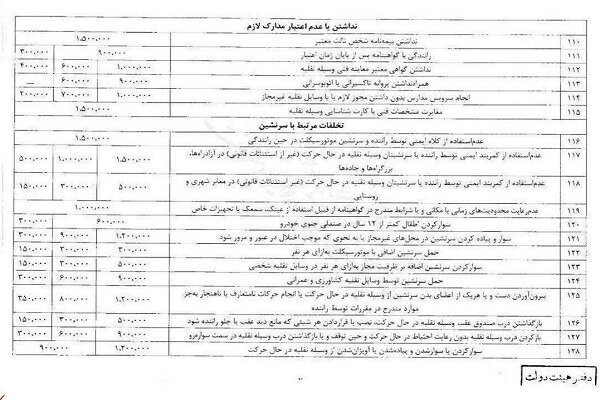 نداشتن یا عدم اعتبار مدارک لازم
۱۱۰ نداشتن بیمه‌نامه شخص ثالث معتبر ۱.۵۰۰.۰۰۰
۱۱۱ رانندگی با گواهینامه پس از پایان زمان اعتبار ۹۰۰.۰۰۰ ۳۰۰.۰۰۰
۱۱۲ نداشتن گواهی معتبر معاینه فنی وسیله نقلیه ۱.۰۰۰.۰۰۰ ۶۰۰.۰۰۰ ۴۰۰.۰۰۰
۱۱۳ همراه‌نداشتن پروانه تاکسیرانی یا اتوبوسرانی ۹۰۰.۰۰۰ ۶۰۰.۰۰۰ —
۱۱۴ انجام سرویس مدارس بدون داشتن مجوز لازم یا با وسایل نقلیه غیرمجاز ۱.۰۰۰.۰۰۰ ۷۰۰.۰۰۰ ۲۰۰.۰۰۰
۱۱۵ مغایرت مشخصات فنی با کارت شناسایی وسیله نقلیه ۱.۵۰۰.۰۰۰
تخلفات مرتبط با سرنشین
۱۱۶ عدم‌استفاده از کلاه ایمنی توسط راننده و سرنشین موتورسیکلت در حین رانندگی ۱.۵۰۰.۰۰۰
۱۱۷ عدم‌استفاده از کمربند ایمنی توسط راننده یا سرنشینان وسیله نقلیه در حال حرکت (غیر از استثنائات قانونی) در آزادراه‌ها، ۱.۵۰۰.۰۰۰ ۱.۰۰۰.۰۰۰ ۵۰۰.۰۰۰
بزرگراه‌ها و جاده‌ها
۱۱۸ عدم‌استفاده از کمربند ایمنی توسط راننده یا سرنشینان وسیله نقلیه در حال حرکت (غیر استثنائات قانونی) در معابر شهری و ۵۰۰.۰۰۰ ۳۰۰.۰۰۰ ۱۵۰.۰۰۰
روستایی
۱۱۹ عدم‌رعایت محدودیت‌های زمانی یا مکانی و یا شرایط مندرج در گواهینامه از قبیل استفاده از عینک، سمعک یا تجهیزات خاص ۱.۰۰۰.۰۰۰
۱۲۰ سوارکردن اطفال کمتر از ۱۲ سال در صندلی جلوی خودرو ۶۰۰.۰۰۰ ۳۰۰.۰۰۰
۱۲۱ سوار و پیاده کردن سرنشین در محل‌های غیرمجاز یا به نحوی که موجب اختلال در عبور و مرور شود ۱.۲۰۰.۰۰۰ ۹۰۰.۰۰۰ ۳۰۰.۰۰۰
۱۲۲ حمل سرنشین اضافی با موتورسیکلت به‌ازای هر نفر
۱۲۳ سوارکردن سرنشین اضافه بر ظرفیت مجاز به‌ازای هر نفر در وسایل نقلیه شخصی ۵۰۰.۰۰۰ ۳۰۰.۰۰۰ ۱۵۰.۰۰۰
۱۲۴ حمل سرنشین توسط وسایل نقلیه کشاورزی و عمرانی ۹۰۰.۰۰۰ ۶۰۰.۰۰۰ ۳۰۰.۰۰۰
۱۲۵ بیرون‌آوردن دست و یا هریک از اعضای بدن سرنشین از وسیله نقلیه در حال حرکت یا انجام حرکات نامتعارف یا ناهنجار به‌جز ۱.۲۰۰.۰۰۰ ۸۰۰.۰۰۰ ۳۵۰.۰۰۰
موارد مندرج در مقررات توسط راننده
۱۲۶ بازگذاشتن درب صندوق عقب وسیله نقلیه در حال حرکت، نصب یا قراردادن هر شیئی که مانع دید عقب یا جلو راننده شود ۵۰۰.۰۰۰ ۳۰۰.۰۰۰ ۱۵۰.۰۰۰
۱۲۷ بازکردن درب وسیله نقلیه بدون رعایت احتیاط در حال حرکت و حین توقف و یا بازگذاشتن درب وسیله نقلیه در سمت سواره‌رو ۹۰۰.۰۰۰ ۶۰۰.۰۰۰ ۳۰۰.۰۰۰
۱۲۸ سوارکردن یا سوارشدن و پیاده‌شدن یا آویزان‌شدن از وسیله نقلیه در حال حرکت ۱.۲۰۰.۰۰۰ ۹۰۰.۰۰۰
دفتر هیئت دولت